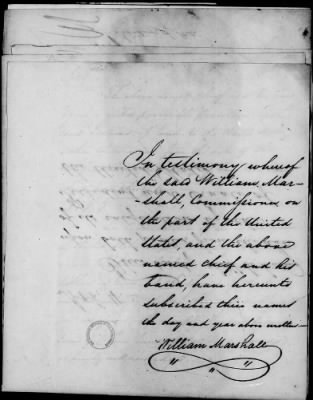 In testimony whereof
the said William Mar-
-shall, Commissioner on
the part of the United
States, and the above
named chief and his
band, have hereunto
subscribed their names
the day and year above written—
William Marshall